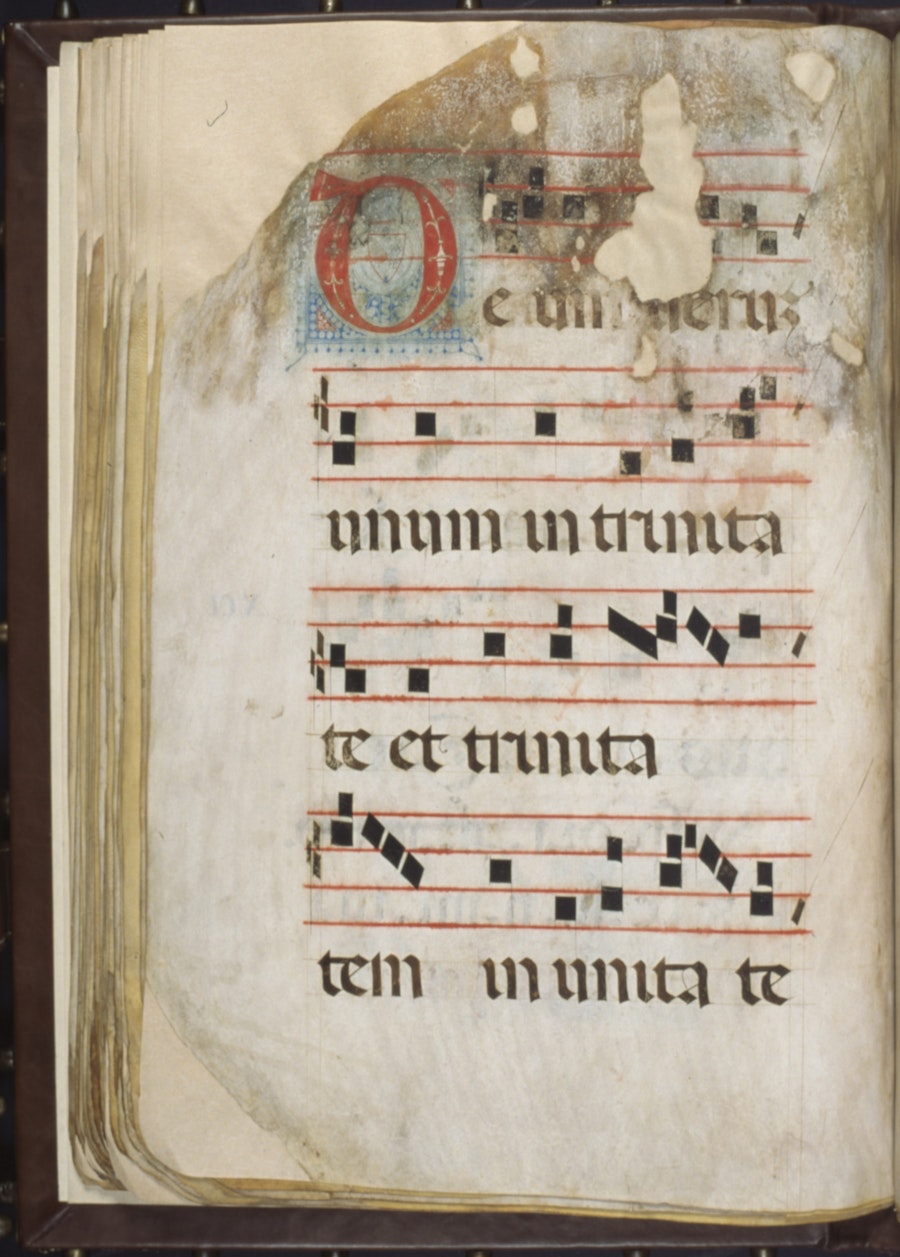 Deum ueruz
unum in trinita
te et trinita
tem in unita te